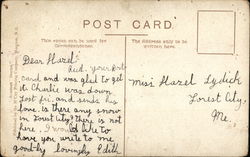 POST CARD.
This space can be used for
Correspondence.
The Address only to be
written here.
Dear Hazel:
Rec'd. your post
card and was glad to get
it. Charlie was down
last fri. and sends his
love. is there any snow
in Forest City? there is not
here. I would like to
have you write to me
good-by lovingly Edith
Miss Hazel Lydick
Forest City,
Me.